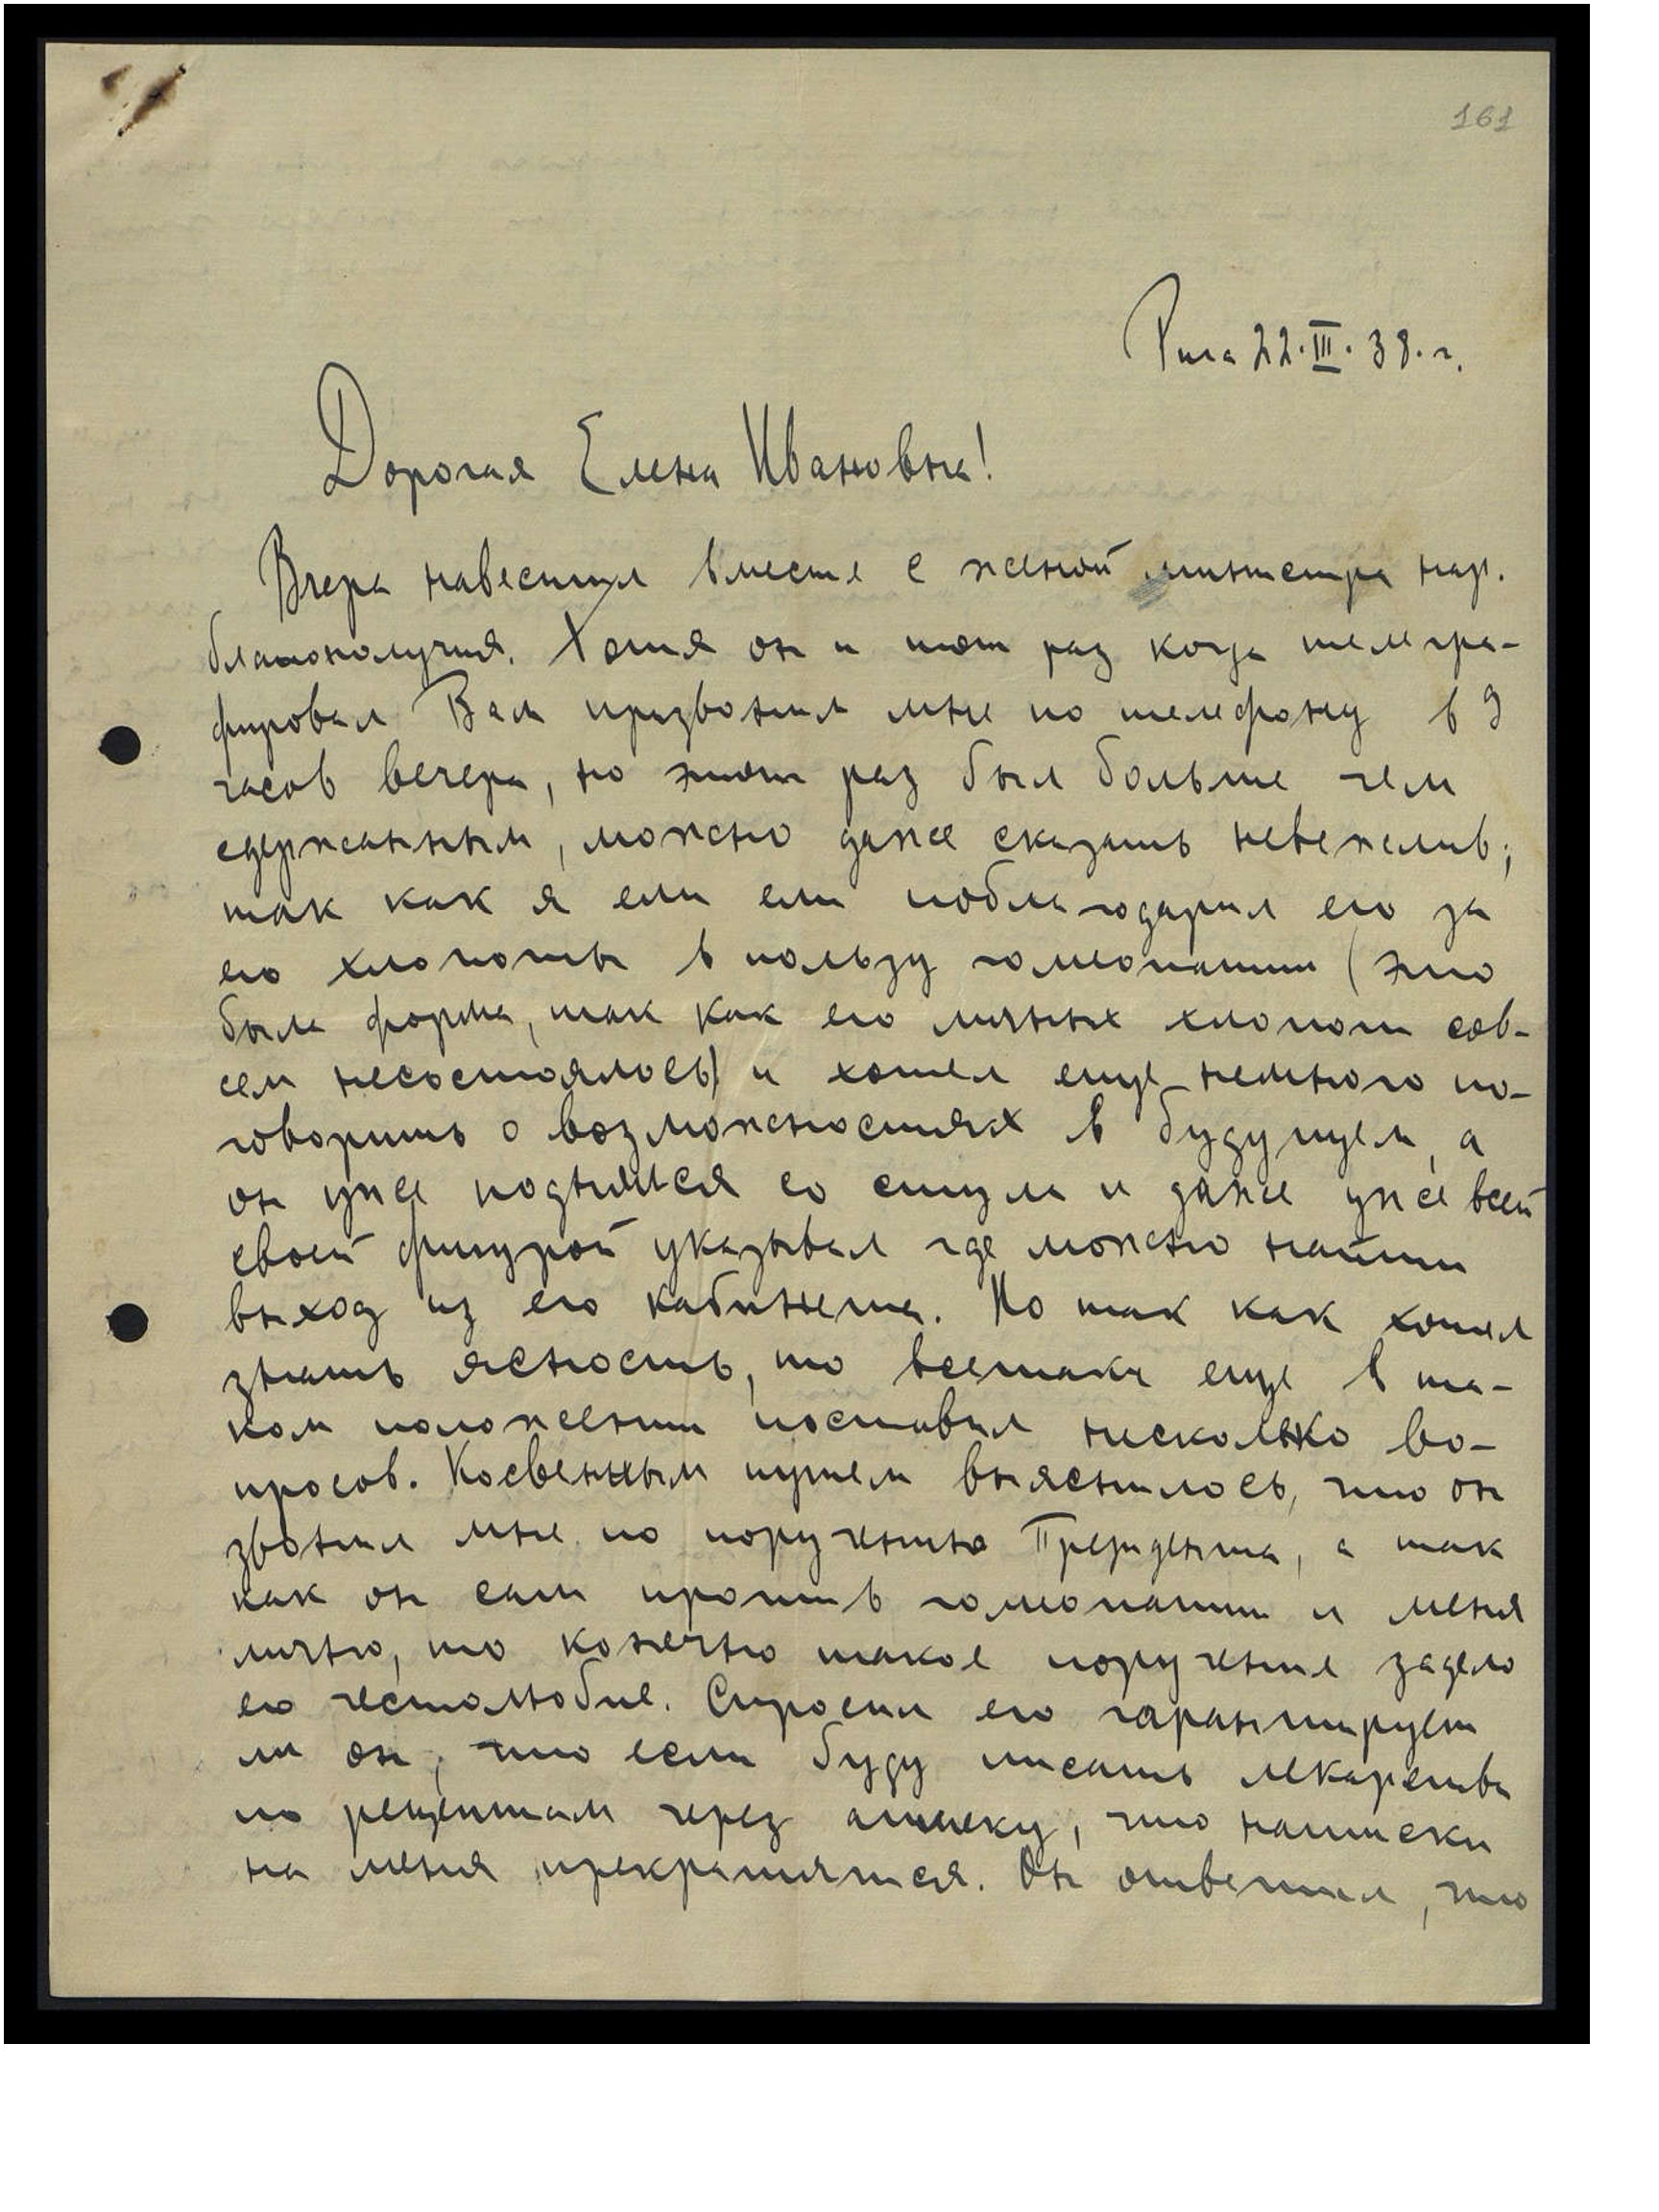 161
Рига 22.III.38.г.
Дорогая Елена Ивановна!
Вчера навестил вместе с женой министра нар.
благополучия. Хотя он и тот раз когда телегра-
фировал Вам призвонил мне по телефону в 9
часов вечера, но этот раз был больше чем
сдержанным, можно даже сказать невежлив;
так как я еле еле поблагодарил его за
его хлопоты в пользу гомеопатии (это
была форма, так как его личных хлопот сов-
сем несостоялось) и хотел еще немного по-
говорить о возможностях в будущем, а
он уже поднялся со стула и даже уже всей
своей фигурой указывал где можно найти
выход из его кабинета. Но так как хотел
знать ясность, то всетаки еще в та-
ком положении поставил несколько во-
просов. Косвенным путем выяснилось, что он
звонил мне по поручению Президента, а так
как он сам против гомеопатии и меня
лично, то конечно такое поручение задело
его честолюбие. Спросил его гарантирует
ли он, что если буду писать лекарства
по рецептам через аптеку, что натиски
на меня прекратятся. Он ответил, что